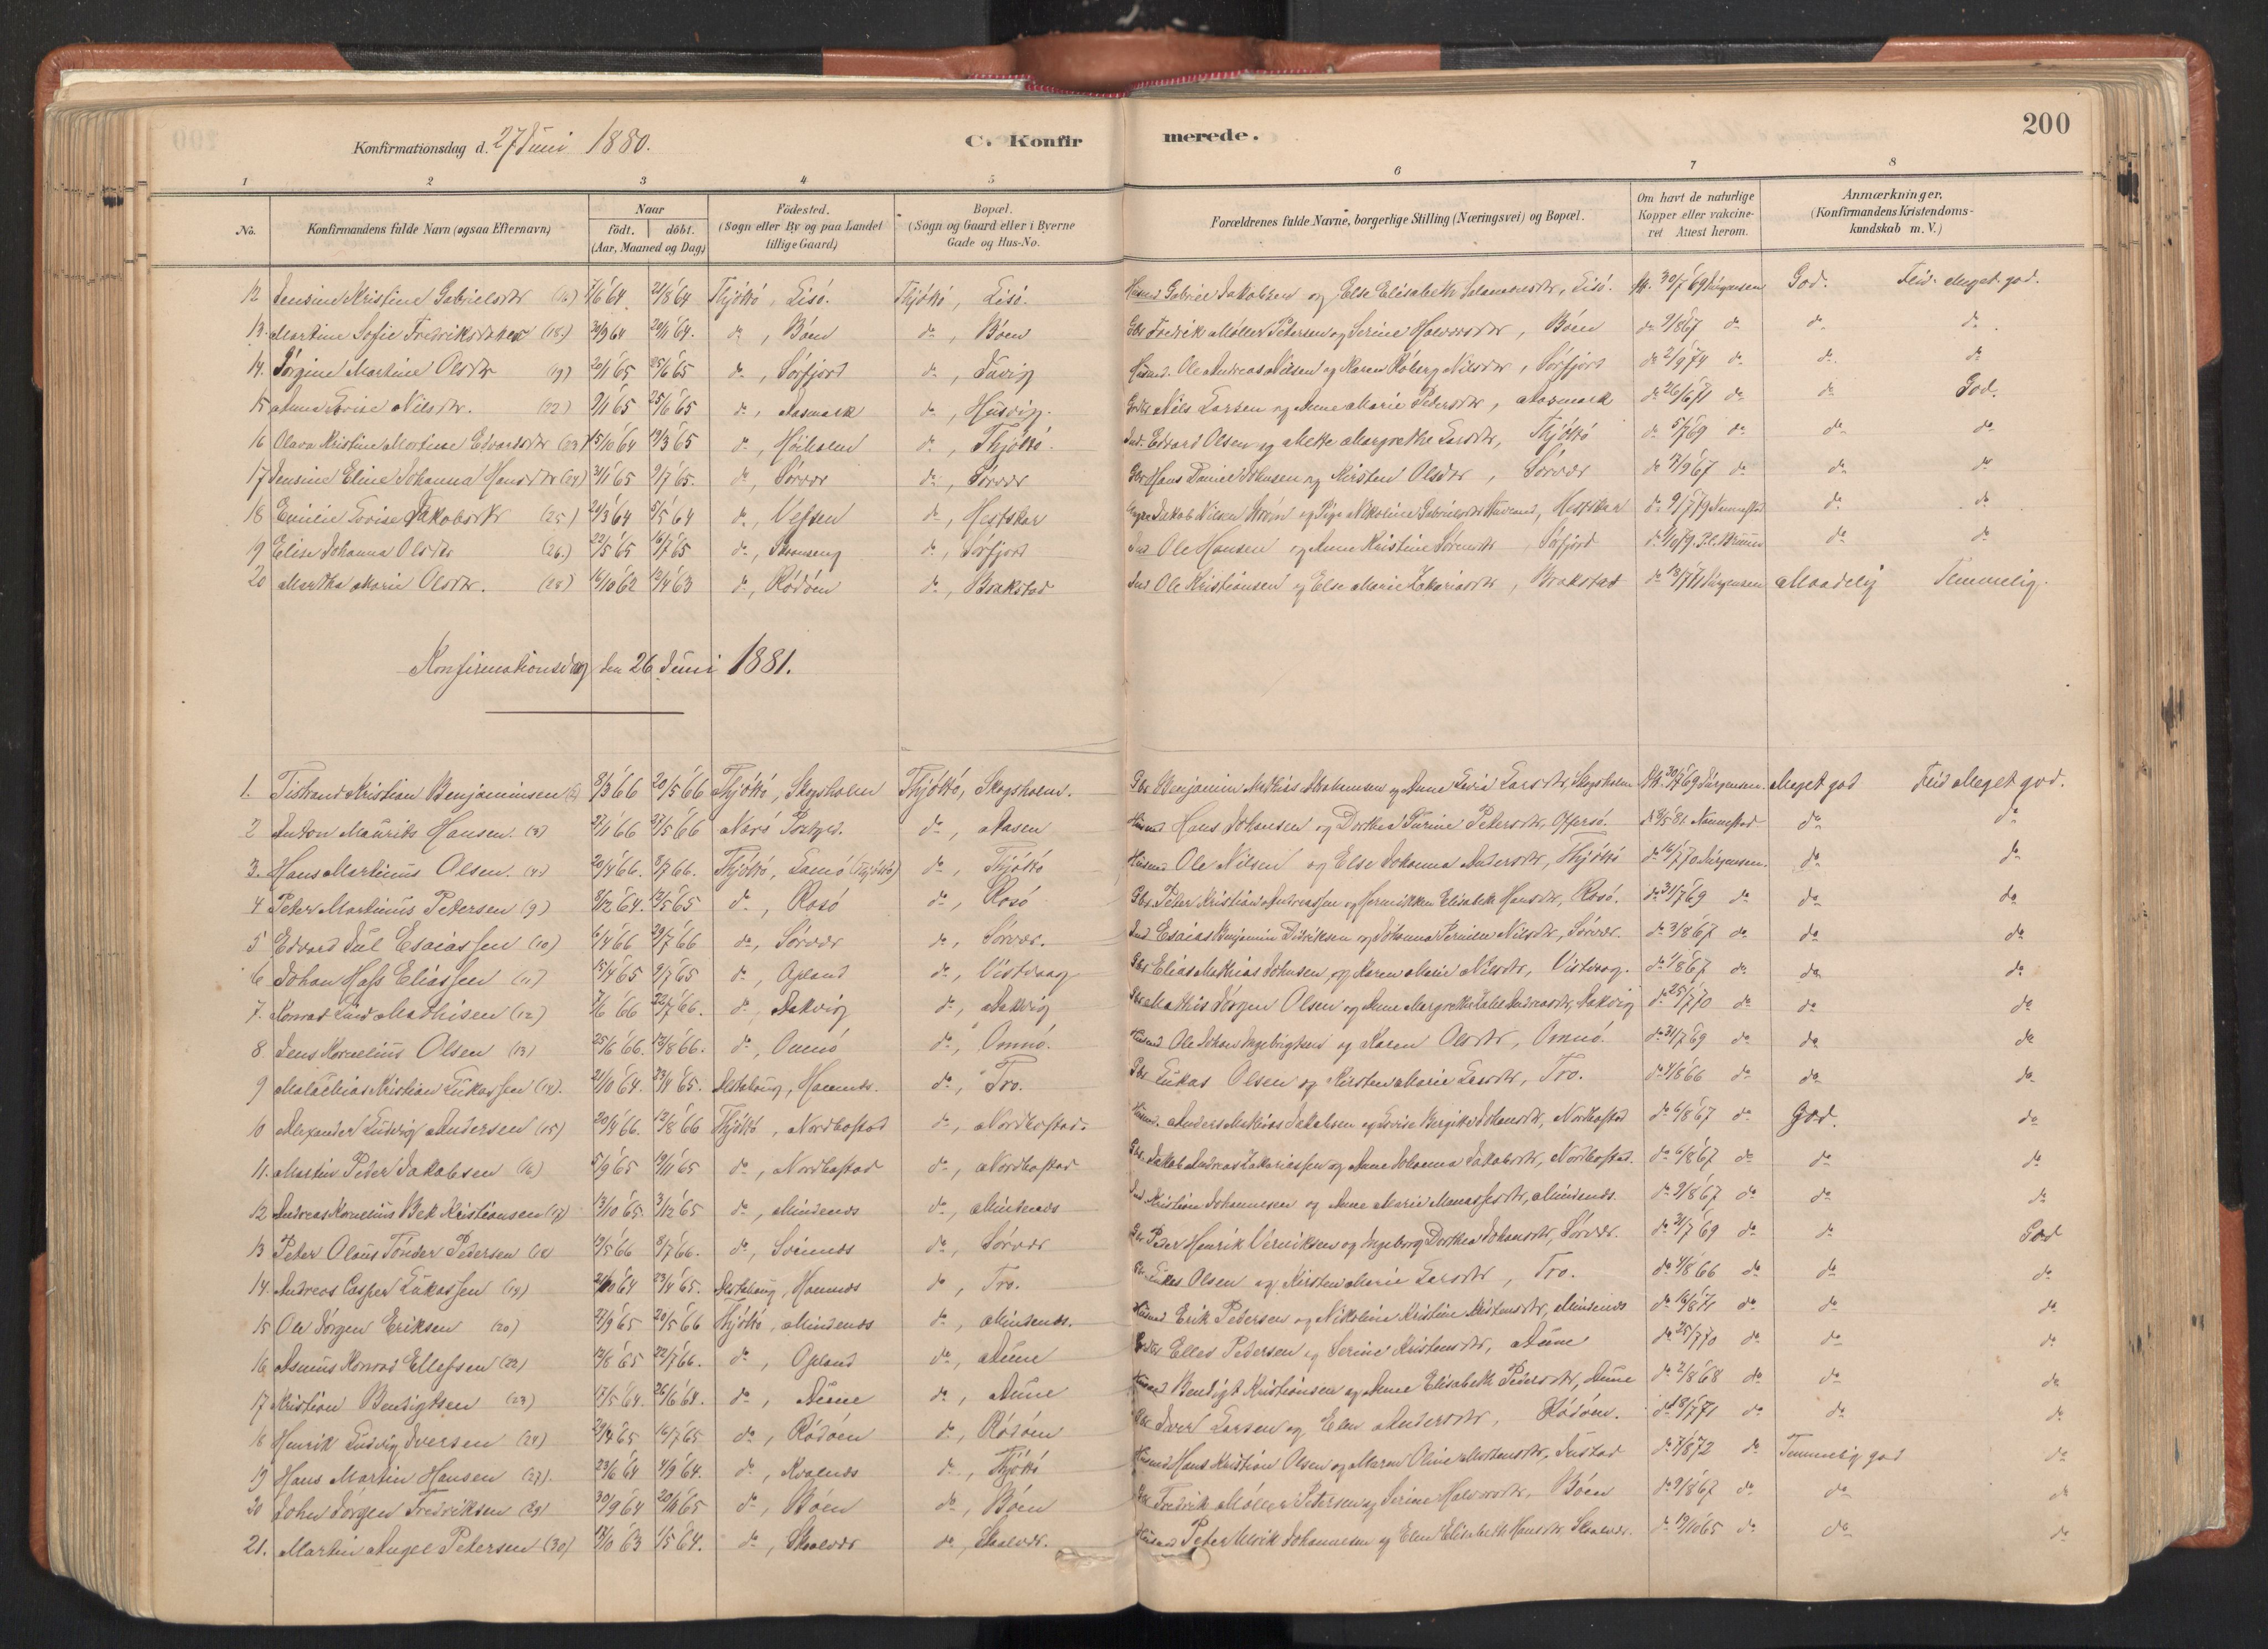 200
Konfirmationsdag d. 27 Juni 1880.
C. Konfir merede.
1 2 3 4 5 6 7 8
No. Konfirmandens fulde Navn (ogsaa Efternavn) Naar født. døbt. (Aar, Maaned og Dag) Fødested. (Sogn eller By og paa Landet tillige Gaard) Bopæl. (Sogn og Gaard eller i Byerne Gade og Hus-No. Forældrenes fulde Navne, borgerlige Stilling (Næringsvei) og Bopæl. Om havt de naturlige Kopper eller vakcineret Attest herom. Anmærkninger, (Konfirmandens Kristendomskundskab m. V.)
12 Jensine Kristine Gabrielsdtr (16) 7/6 64 21/8 64 Thjøttø, Lisø. Thjøttø, Lisø. Husmd Gabriel Jakobsen og Else Elisabeth Salamonsdtr, Lisø. 30/7 69 Jürgensen God. Flid Meget god.
13. Martine Sofie Fredriksdatter (18) 30/9 64 20/11 64. do, Bøen do, Bøen Gbr Fredrik Møller Petersen og Serine Halvorsdtr, Bøen do 9/8 67 do do do
14. Jørgine Martine Olsdtr (19) 20/1 65 25/6 65 do, Sørfjord do, Husmd. Ole Andreas Nilsen og Karen Røberg Nilsdtr, Sørfjord do 2/9 74 do do do
15 Anna Lovise Nilsdtr. (22) 9/1 65 25/6 65 do, Aasmark do, Husvig. Nils Larsen og Anne Marie Pedersdtr, Aasmark do 26/6 71 do do God.
16 Olava Kristine Martine Edvardsdtr (23) 15/10 64 19/3 65 do, Høiholm do, Thjøttø. Ind. Edvard Olsen og Mette Margrethe Larsdtr, Thjøttø do 5/7 69 do do do
17 Jensine Eline Johanna Hansdtr (24) 31/1 65 9/7 65. do, Sørvær do, Sørvær Gbr Hans Daniel Johnsen og Kirsten Olsdtr, Sørvær do 7/9 67 do do do
18 Emilie Lovise Jakobsdtr (25) 29/3 64 5/5 64 do, Vefsen do, Hestskar Jakob Nilsen Strøm og Pige Nikoline Gabrielsdtr, Hestskar do 9/7 79 Nannestad do do
19 Elise Johanna Olsdtr (26) 22/5 65 16/7 65 do, do, Sørfjord Ind Ole Hansen og Anne Kristine Sørensdtr, Sørfjord do do
20 Martha Marie Olsdtr. (28) 16/10 62 12/4 63 do, Rødøen do, Brakstad Ind Ole Kristiansen og Else Marie Zakariasdtr, Brakstad do 13/7 71 Jürgensen Maadelig Temmelig.
Konfirmationsdag den 26 Juni 1881.
1. Tistrand Kristian Benjaminsen 8/3 66 20/5 66 Thjøttø, Skogsholm Thjøttø, Skogsholm. Gbr Benjamin Mathias Abrahamsen og Anne Larsdtr, Skogsholm 30/7 69 Jürgensen. Meget god Flid Meget god.
2 Anton Mauritz Hansen. (3) 27/1 66 27/5 66 Nærø Prstgd. do, Aasen Husmd Hans Johansen og Dorthea Petersdtr, Offersø. 19/5 81. Nannestad do do
3. Hans Martinus Olsen. (4) 20/4 66. 8/7 66. Thjøttø, (Thjøttø) do, Thjøttø Husmd Ole Nilsen og Else Johanna Andersdtr, Thjøttø do 16/7 70 Jürgensen. do do
4 Peter Martinus Petersen (9) 8/12 64. 12/5 65 do, Rosø do, Rosø Gbr. Peter Kristian Andreassen og Henrikken Elisabeth Hansdtr, Rosø. do 31/7 69 do do do
5 Edvard Jul Esaiassen (10) 6/4 66 29/7 66 do, Sørvær do, Sørvær. Ind Esaias Benjamin Didriksen og Johanna Pernilla Nilsdtr, Sørvær. do 3/8 67 do do do
6 Johan Hass Eliassen (11) 15/4 65 9/7 65 do, Opland do, Vistvaag Gbr Elias Mathias Johnsen og Karen Marie Nilsdtr, Vistvaag. do 1/8 67 do do do
7. Konrad Lind Mathisen (12) 7/6 66 22/7 66. do, Aakvig do, Aakvig Gbr Mathis Jørgen Olsen og Anne Margrethe Andreasdtr, Aakvig do 25/7 70 do do do
8 Jens Kornelius Olsen (13) 25/6 66. 12/8 66. do, Omnø do, Omnø. Husmd Ole Johan Ingebrigtsen og Karen Olsdtr, Omnø. do 31/7 69 do do do
9 Malachias Kristian Lukassen (14). 21/10 64. 23/4 65. Alstahoug, Hamnes. do, Tro. Gbr Lukas Olsen og Kirsten Marie Larsdtr, Tro. do 4/8 66 do do do
10 Alexander Ludvig Andersen (15) 20/4 66. 12/8 66 Thjøttø, Nordbostad do, Nordbostad. Husmd. Anders Mathias Jakobsen og Lovise Bergitte Johansdtr, Nordbostad do 6/8 67 do God. do
11. Martin Peder Jakobsen (16) 5/9 65 19/11 65 do, Nordbostad do, Nordbostad Gbr. Jakob Andreas Zakariassen og Anne Johanna Jakobsdtr, Nordbostad. do 6/8 67 do do do
12 Andreas Kornelius Bek Kristiansen (17) 13/10 65. 3/12 65 do, Mindenes do, Mindenes Ind Kristian Johannesen og Anne Marie Manassesdtr, Mindenes. do 9/8 67 do do do
13 Peter Olaus Tønder Pedersen (18 19/5 66 8/7 66. do, Svinnes do, Sørvær Gbr Peder Henrik Verniksen og Ingeborg Dorthea Johansdtr, Sørvær. do 31/7 69 do do God
14. Andreas Casper Lukassen (19) 21/10 64 23/4 65. Alstahoug, Hamnes do, Tro. Gbr Lukas Olsen og Kirsten Marie Larsdtr, Tro. do 4/8 66 do do do
15 Ole Jørgen Eriksen (20) 27/9 65 20/5 66 Thjøttø, Mindenes do, Mindenes. Husmd Erik Pedersen og Nikoline Kristine Kristensdtr, Mindenes do 16/8 71 do do do
16 Asmus Konrad Ellefsen (22) 12/8 65 22/7 66. do, Opland do, Aune Elles Pedersen og Serine Kristensdtr, Aune do 25/7 70 do do do
17 Kristian Bendigtsen (23) 17/5 64. 26/6 64. do, Aune do, Aune Husmd Bendigt Kristiansen og Anne Elisabeth Pedersdtr, Aune do 2/8 68 do do do
18 Henrik Ludvig Iversen (24) 29/4 65 16/7 65 do, Rødøen do, Rødøen Gbr Iver Larsen og Elen Andersdtr, Rødøen. do 18/7 71 do do do
19 Hans Martin Hansen (27). 23/6 64 4/9 64. do, Kvalnes do, Thjøttø Husmd Hans Kristian Olsen og Maren Oline Mortensdtr, do 7/8 72 do Temmelig god do
20 John Jørgen Fredriksen (29) 30/9 64 20/11 65 do, Bøen do, Bøen Gbr Fredrik Møller Petersen og Serine Halvorsdtr, Bøen do 9/8 67 do do do
21. Martin Angel Petersen (30) 18/10 63 1/5 64. do, Skaalvær do, Skaalvær. Husmd Peter Ulrik Johannesen og Elen Elisabeth Hansdtr, Skaalvær. do 19/10 65 do do do